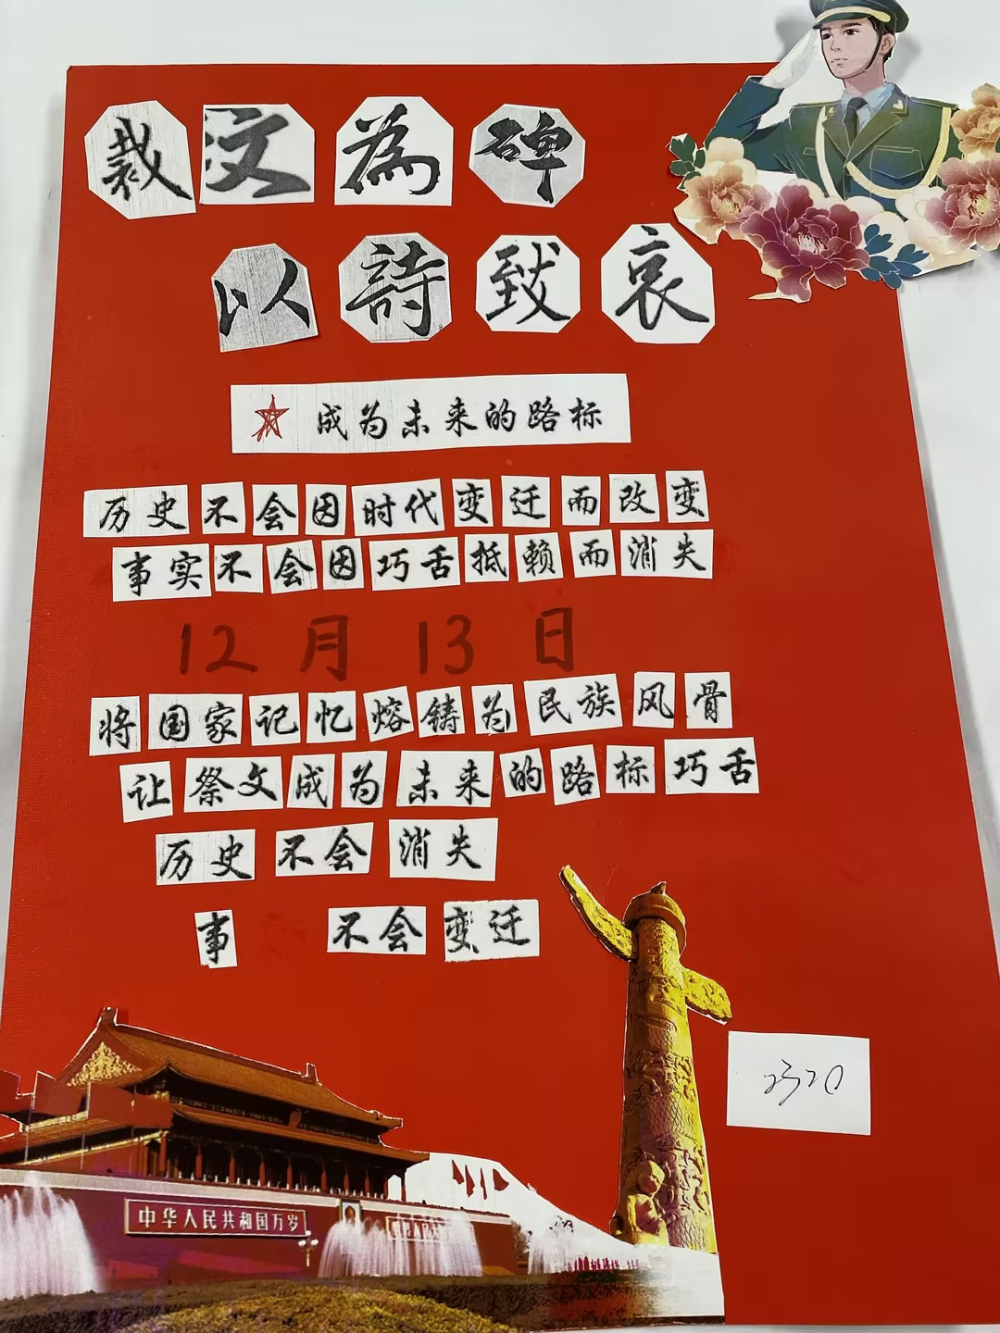 裁文為碑
以詩致哀
成为未来的路标
历史不会因时代变迁而改变
事实不会因巧舌抵赖而消失
12月13日
将国家记忆熔铸为民族风骨
让祭文成为未来的路标巧舌
历史不会消失
事 不会变迁
中华人民共和国万岁
2320